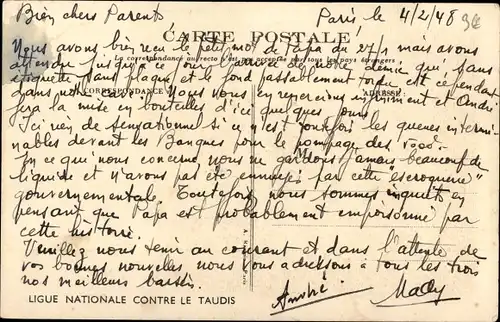 Bien chers Parents Paris, le 4/2/48
CARTE POSTALE
Nous avons bien reçu le petit mot de Papa du 27/1 mais avons
attendu jusqu'à l'arrivée de votre demie qui, sans
La correspondance au recto n'est pas acceptée par tous les pays étrangers
étiquette, sans plaque et le fond passablement tordu est cependant
CORRESPONDANCE ADRESSE
dans notre Nous vous en remercions infiniment et André
fera la mise en bouteilles d'ici quelques jours
Ici rien de sensationnel si ce n'est toutefois les queues intermi-
nables devant les Banques pour le pompage des 5000.-
En ce qui nous concerne, nous ne gardons jamais beaucoup de
liquide et n'avons pas été ennuyés par cette "escroquerie"
gouvernementale. Toutefois nous sommes inquiets en
pensant que Papa est probablement empoisonné par
cette histoire.
Veuillez nous tenir au courant et dans l'attente de
vos bonnes nouvelles nous vous adressons à tous les trois
nos meilleurs baisers.
André Mady
LIGUE NATIONALE CONTRE LE TAUDIS